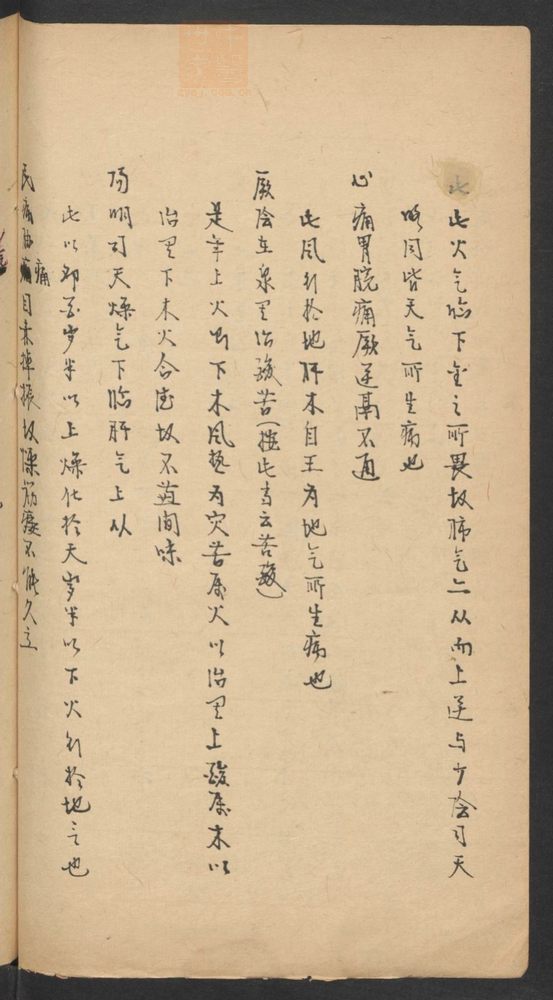 此此火气临下金之所畏故肺气上从而上逆与少陰司天
略同皆天气所生病也
心痛胃脘痛厥逆鬲不通
此风行於地肝木自王为地气所生病也
厥陰在泉其治酸苦(按此当云苦酸)
是年上火而下木风热为灾苦属火以治其上酸属木以
治其下木火合德故不益间味
阳明司天燥气下临肝气上从
此以卯酉岁半以上燥化於天岁半以下火行於地言也
民病胁痛目赤掉振鼓慄筋痿不能久立